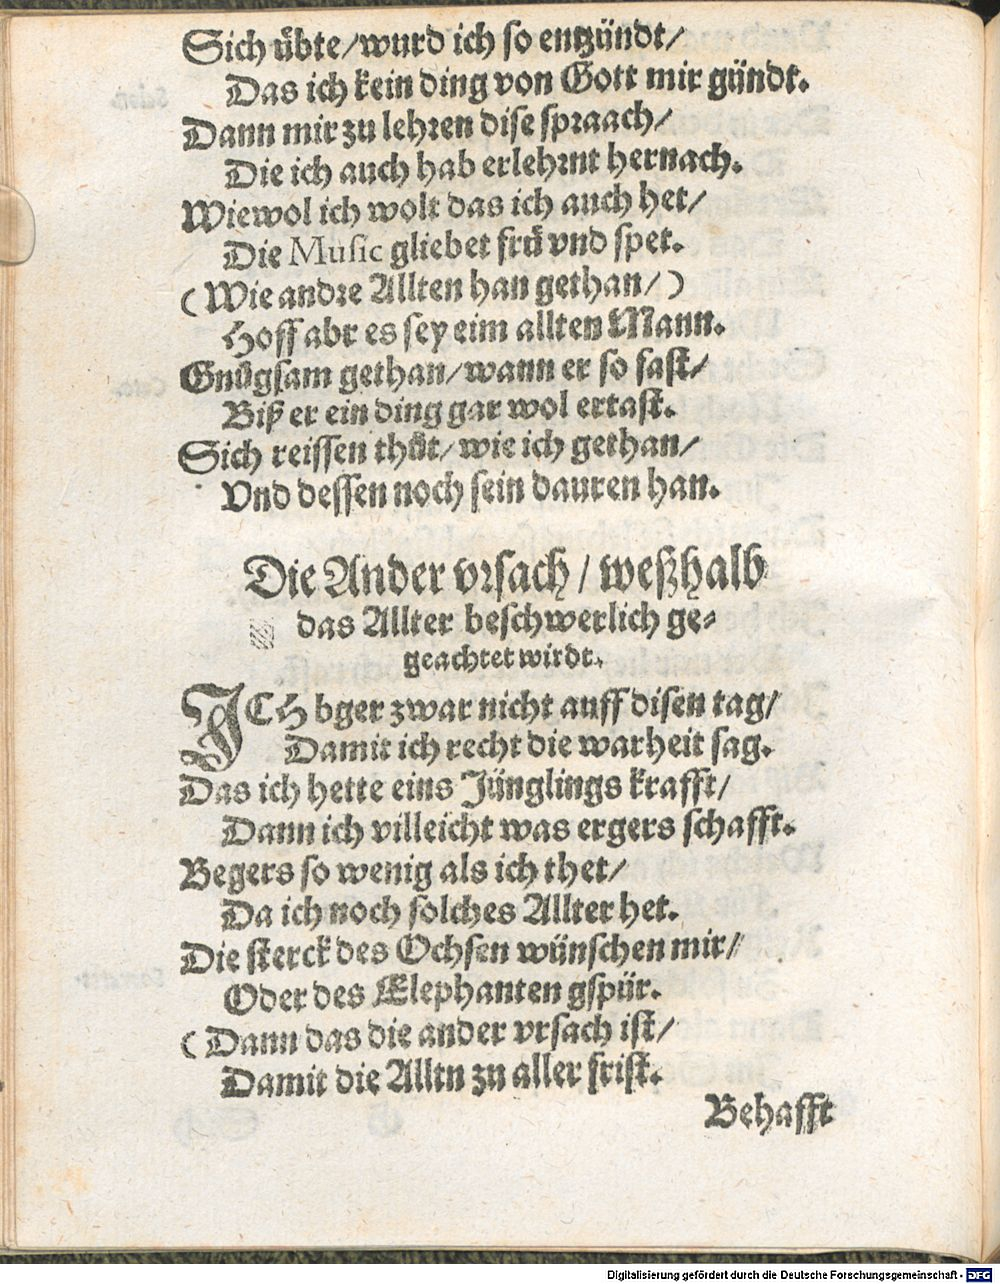 Sich übte/wurd ich so entzündt/
Das ich kein ding von Gott mir gündt.
Dann mir zu lehren dise spraach/
Die ich auch hab erlehrnt hernach.
Wiewol ich wolt das ich auch het/
Die Music gliebet frů vnd spet.
(Wie andre Allten han gethan/)
Hoff abr es sey eim allten Mann.
Gnůgsam gethan/wann er so fast/
Biß er ein ding gar wol ertast.
Sich reissen thůt/wie ich gethan/
Vnd dessen noch sein dauren han.
Die Ander vrsach/weßhalb
das Allter beschwerlich ge-
geachtet wirdt.
ICH bger zwar nicht auff disen tag/
Damit ich recht die warheit sag.
Das ich hette eins Jünglings krafft/
Dann ich villeicht was ergers schafft.
Begers so wenig als ich thet/
Da ich noch solches Allter het.
Die sterck des Ochsen wünschen mir/
Oder des Elephanten gspür.
(Dann das die ander vrsach ist/
Damit die Alltn zu aller frist.
Behafft
Digitalisierung gefördert durch die Deutsche Forschungsgemeinschaft - DFG